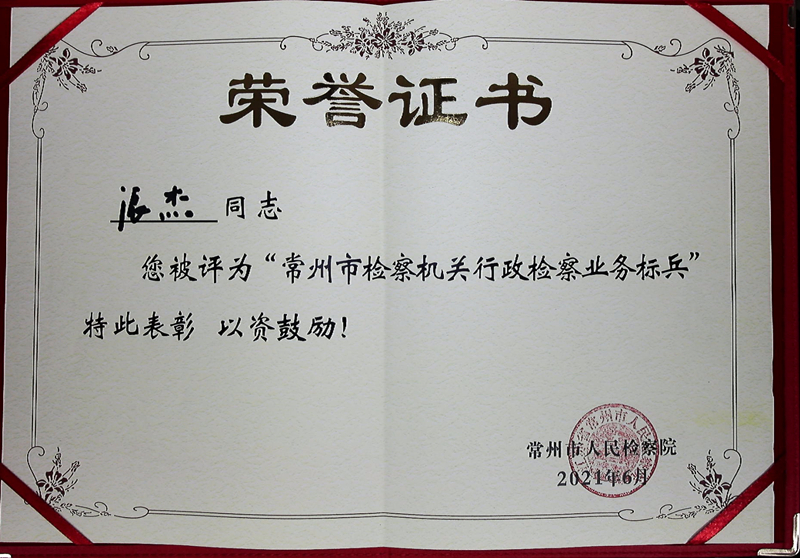 荣誉证书
张杰 同志
您被评为“常州市检察机关行政检察业务标兵”
特此表彰 以资鼓励！
常州市人民检察院
2021年6月